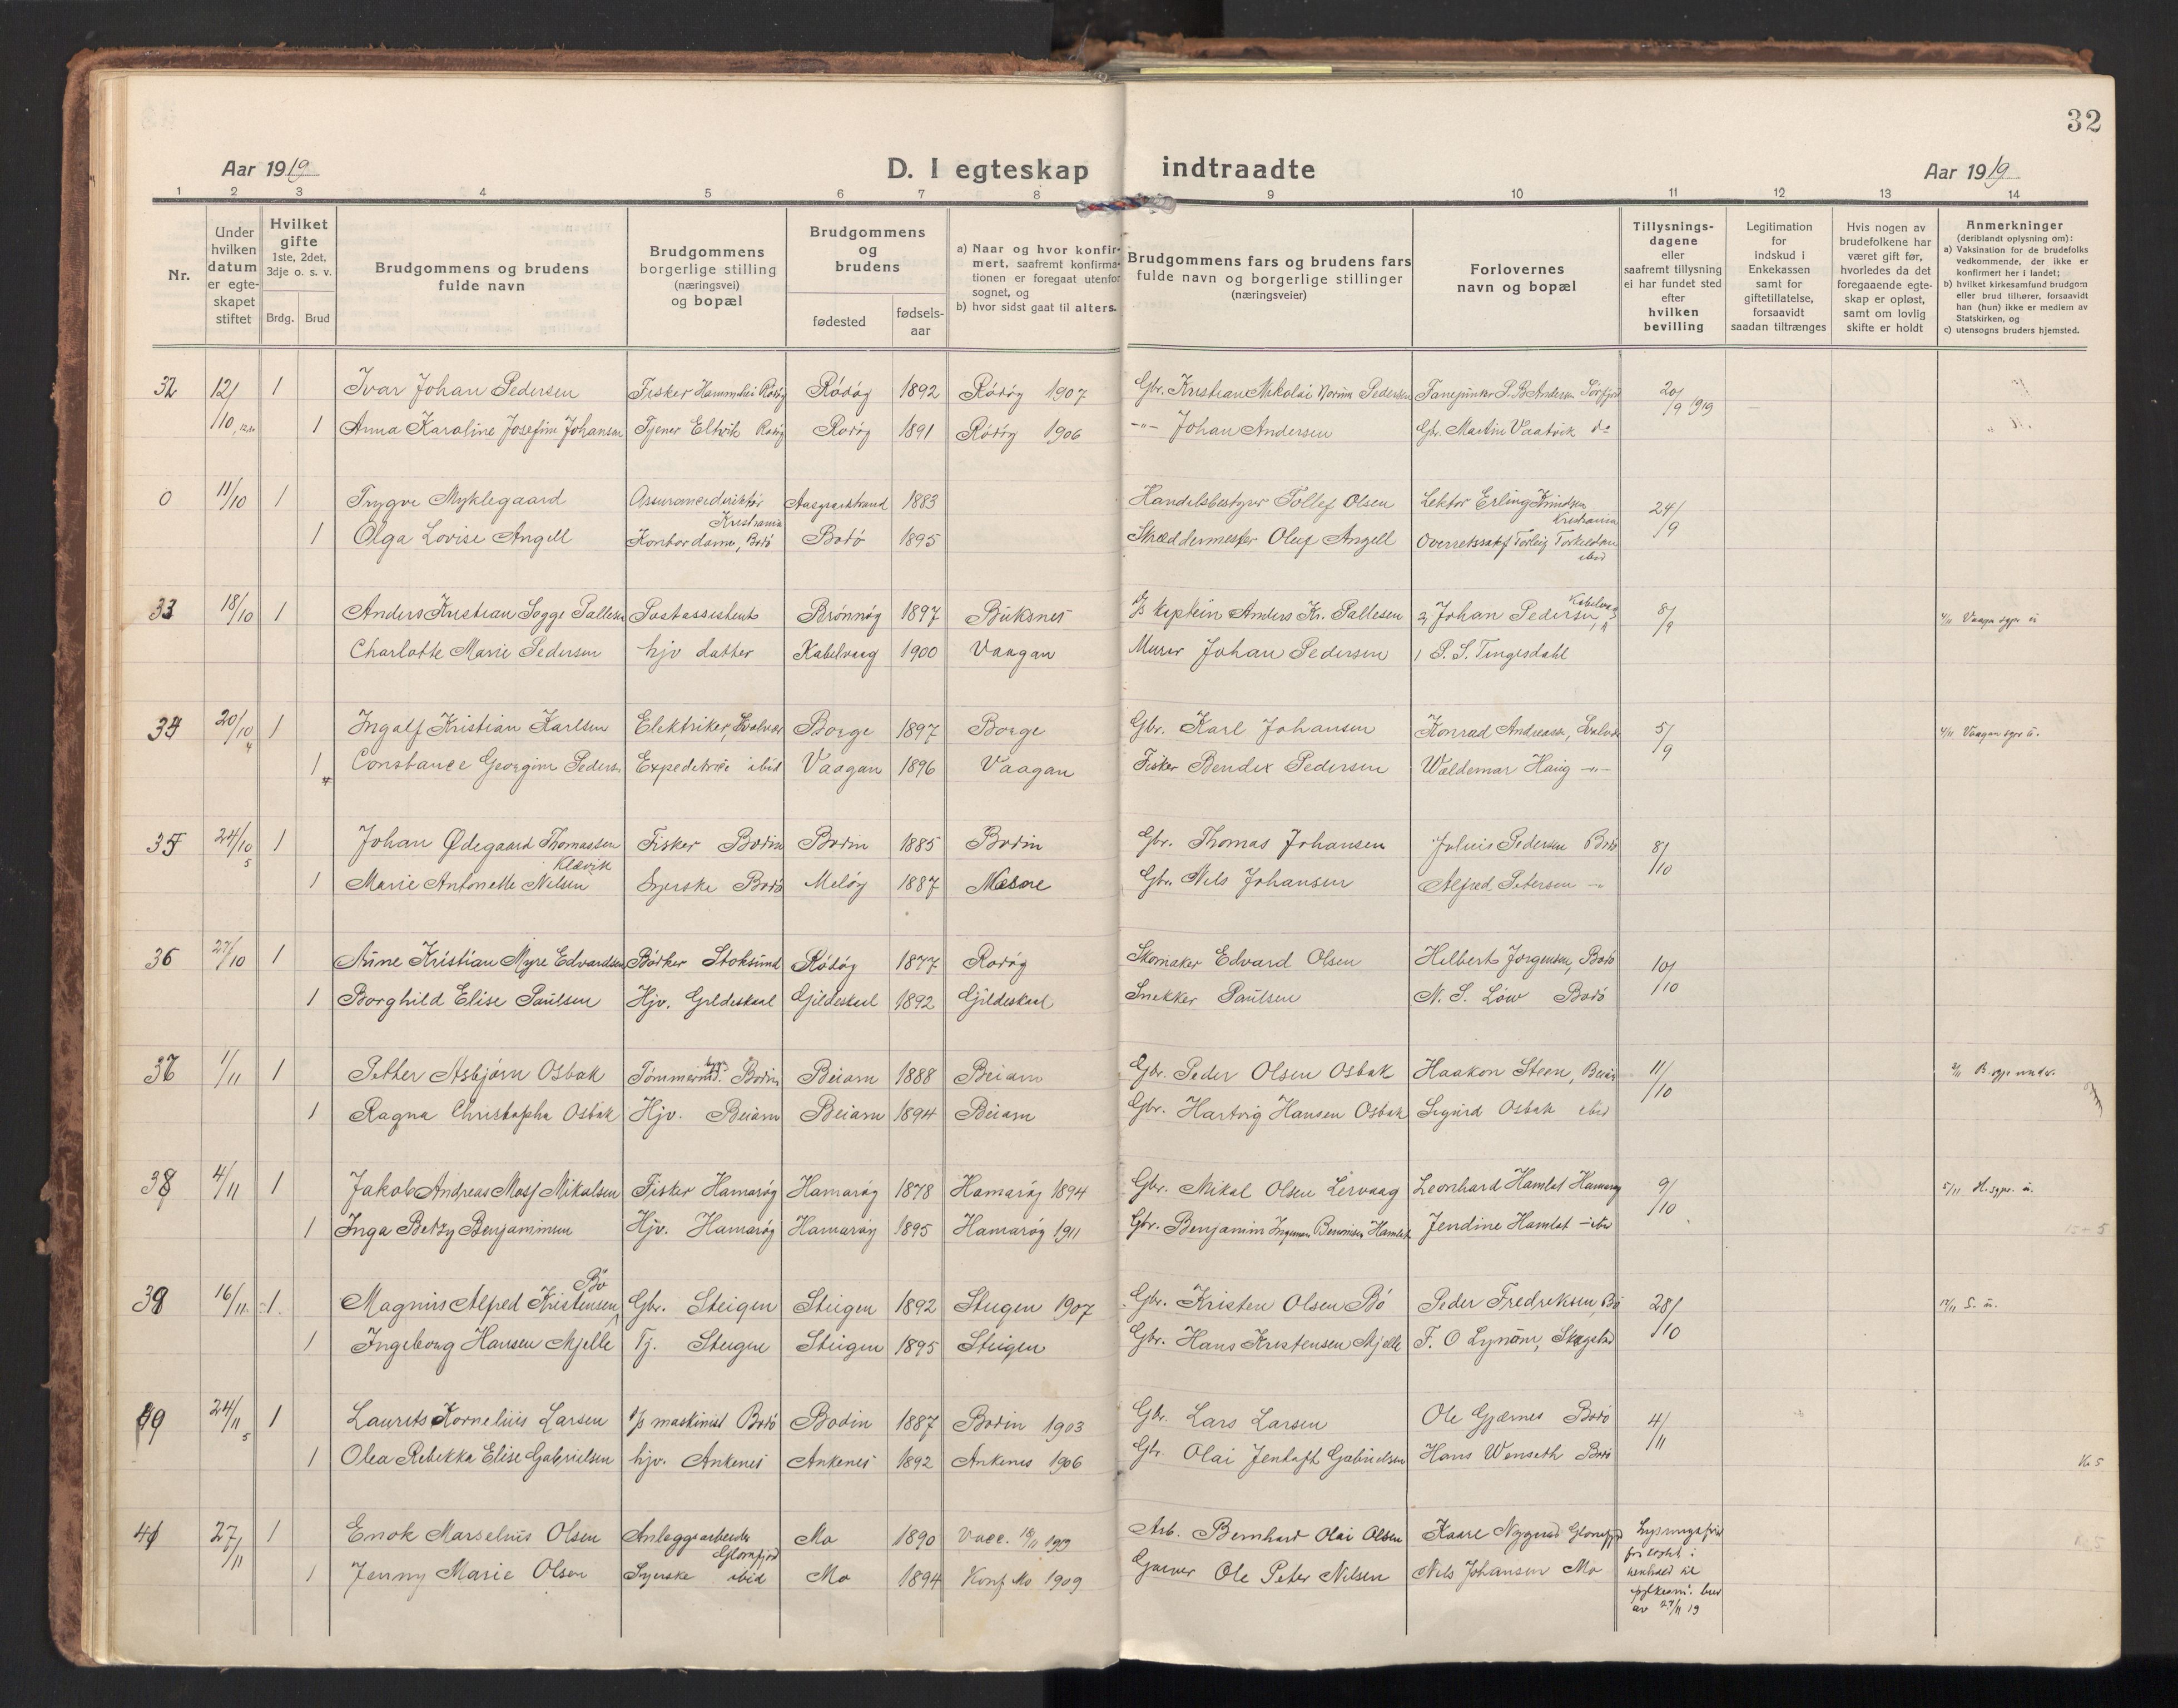 32
Aar 1919 D. I egteskap indtraadte Aar 1919
1 2 3 4 5 6 7 8 9 10 11 12 13 14
Nr.
Under hvilken datum er egte-skapet stiftet
Hvilket gifte 1ste, 2det, 3dje o. s. v.
Brdg. Brud
Brudgommens og brudens fulde navn
Brudgommens borgerlige stilling (næringsvei) og bopæl
Brudgommens og brudens
fødested fødsels-aar
a) Naar og hvor konfir-mert, saafremt konfirma-tionen er foregaat utenfor sognet, og
b) hvor sidst gaat til alters.
Brudgommens fars og brudens fars fulde navn og borgerlige stillinger (næringsveier)
Forlovernes navn og bopæl
Tillysnings-dagene eller saafremt tillysning ei har fundet sted efter hvilken bevilling
Legitimation for indskud i Enkekassen samt for giftetillatelse, forsaavidt saadan tiltrænges
Hvis nogen av brudefolkene har været gift før, hvorledes da det foregaaende egte-skap er opløst, samt om lovlig skifte er holdt
Anmerkninger (deriblandt oplysning om):
a) Vaksination for de brudefolks vedkommende, der ikke er konfirmert her i landet;
b) hvilket kirkesamfund brudgom eller brud tilhører, forsaavidt han (hun) ikke er medlem av Statskirken, og
c) utensogns bruders hjemsted.
32 12/10 1 Ivar Johan Pedersen Fisker Rödöy Rödöy 1892 Rödöy 1907 Gbr. Kristian Nikolai Pedersen 20/9 1919
1 Anna Karoline Josefine Johansen Tjener Eltvik Rödöy Rödöy 1891 Rödöy 1906 -"- Johan Andersen Gbr. Martin Vaatvik do
0 11/10 1 Trygve Myklegaard Assurancedirektör Kristiania Aasgaardstrand 1883 Handelsbestyrer Tollef Olsen Lektor Erling Knudsen Kristiania 24/9
1 Olga Lovise Angell Kontordame, Bodö Bodö 1895 Skræddermester Oluf Angell Overretssakf Torleig Torkelsen ibid
33 18/10 1 Anders Kristian Sogge Pallesen Postassistent Brönnöy 1897 Buksnes D/S Kaptein Anders Kr. Pallesen 2, Johan Pedersen, Kabelvaag 8/9 4/11 Vaagan sgpr u
Charlotte Marie Pedersen hjv datter Kabelvaag 1900 Vaagan Murer Johan Pedersen 1 P. S. Tengesdahl
34 20/10 1 Ingolf Kristian Karlsen Elektriker, Svolvær Borge 1897 Borge Gbr. Karl Johansen Konrad Andreassen, Svolvær 5/9 4/11 Vaagan sgpr u.
1 Constance Georgine Pedersen Expeditrice ibid Vaagan 1896 Vaagan Fisker Bendix Pedersen Waldemar Haug -"-
35 24/10 5 1 Johan Ødegaard Thomassen Klævik Fisker Bodin Bodin 1885 Bodin Gbr. Thomas Johansen Julius Pedersen Bodö 8/10
1 Marie Antonette Nilsen Syerske Bodö Melöy 1887 Nesne Gbr. Nils Johansen Alfred Petersen -"
36 27/10 1 Aune Kristian Myre Edvardsen Bødker Stoksund Rödöy 1877 Rödöy Skomaker Edvard Olsen Helbert Jorgensen, Bodö 10/10
1 Borghild Elise Paulsen Hjv. Gildeskaal Gildeskaal 1892 Gildeskaal Snekker Paulsen N. S. Löw Bodö
37 1/11 1 Petter Asbjørn Osbak Tömmermd. Bodin Beiarn 1888 Beiarn Gbr. Peder Olsen Osbak Haakon Steen, Beiarn 11/10
1 Ragna Christopha Osbak Hjv. Beiarn Beiarn 1894 Beiarn Gbr. Hartvig Hansen Osbak Sigurd Osbak ibid
38 4/11 1 Jakob Andreas Mosf Mikalsen Fisker Hamaröy Hamaröy 1878 Hamaröy 1894 Gbr. Mikal Olsen Lervaag Leonhard Hamlot Hamaröy 9/10 5/11 H. sgpr. u.
1 Inga Betzy Benjaminsen Hjv. Hamaröy Hamaröy 1895 Hamaröy 1911 Gbr. Benjamin Ingeman Hamlot Jendine Hamlot - ibd
39 16/11 1 Magnus Alfred Kristensen Bö Gbr. Steigen Steigen 1892 Steigen 1907 Gbr. Kristen Olsen Bö Peder Fredriksen, Bö 28/10 17/11 S. u.
1 Ingeborg Hansen Mjelle Tj. Steigen Steigen 1895 Steigen Gbr. Hans Kristensen Mjelle F. O Lynum, Skagstad
40 24/11 5 1 Laurits Kornelius Larsen D/S maskinist Bodö Bodin 1887 Bodin 1903 Gbr. Lars Larsen Ole Gjærnes Bodö 4/11
1 Olea Rebekka Elise Gabrielsen hjv. Ankenes Ankenes 1892 Ankenes 1906 Gbr. Olai Jentoft Gabrielsen Hans Wenseth Bodö
41 27/11 1 Enok Marselius Olsen Anlæggsarbeider Glomfjord Mo 1890 Vacc. 18/11 1919 Arb. Bernhard Olai Olsen Kaare Nygaard Glomfjord Lysningsfrist forkortet i henhold til fylkesm. brev av 27/11 19
1 Jenny Marie Olsen Syerske ibid Mo 1894 Konf Mo 1909 Garver Ole Peter Nilsen Nils Johansen Mo